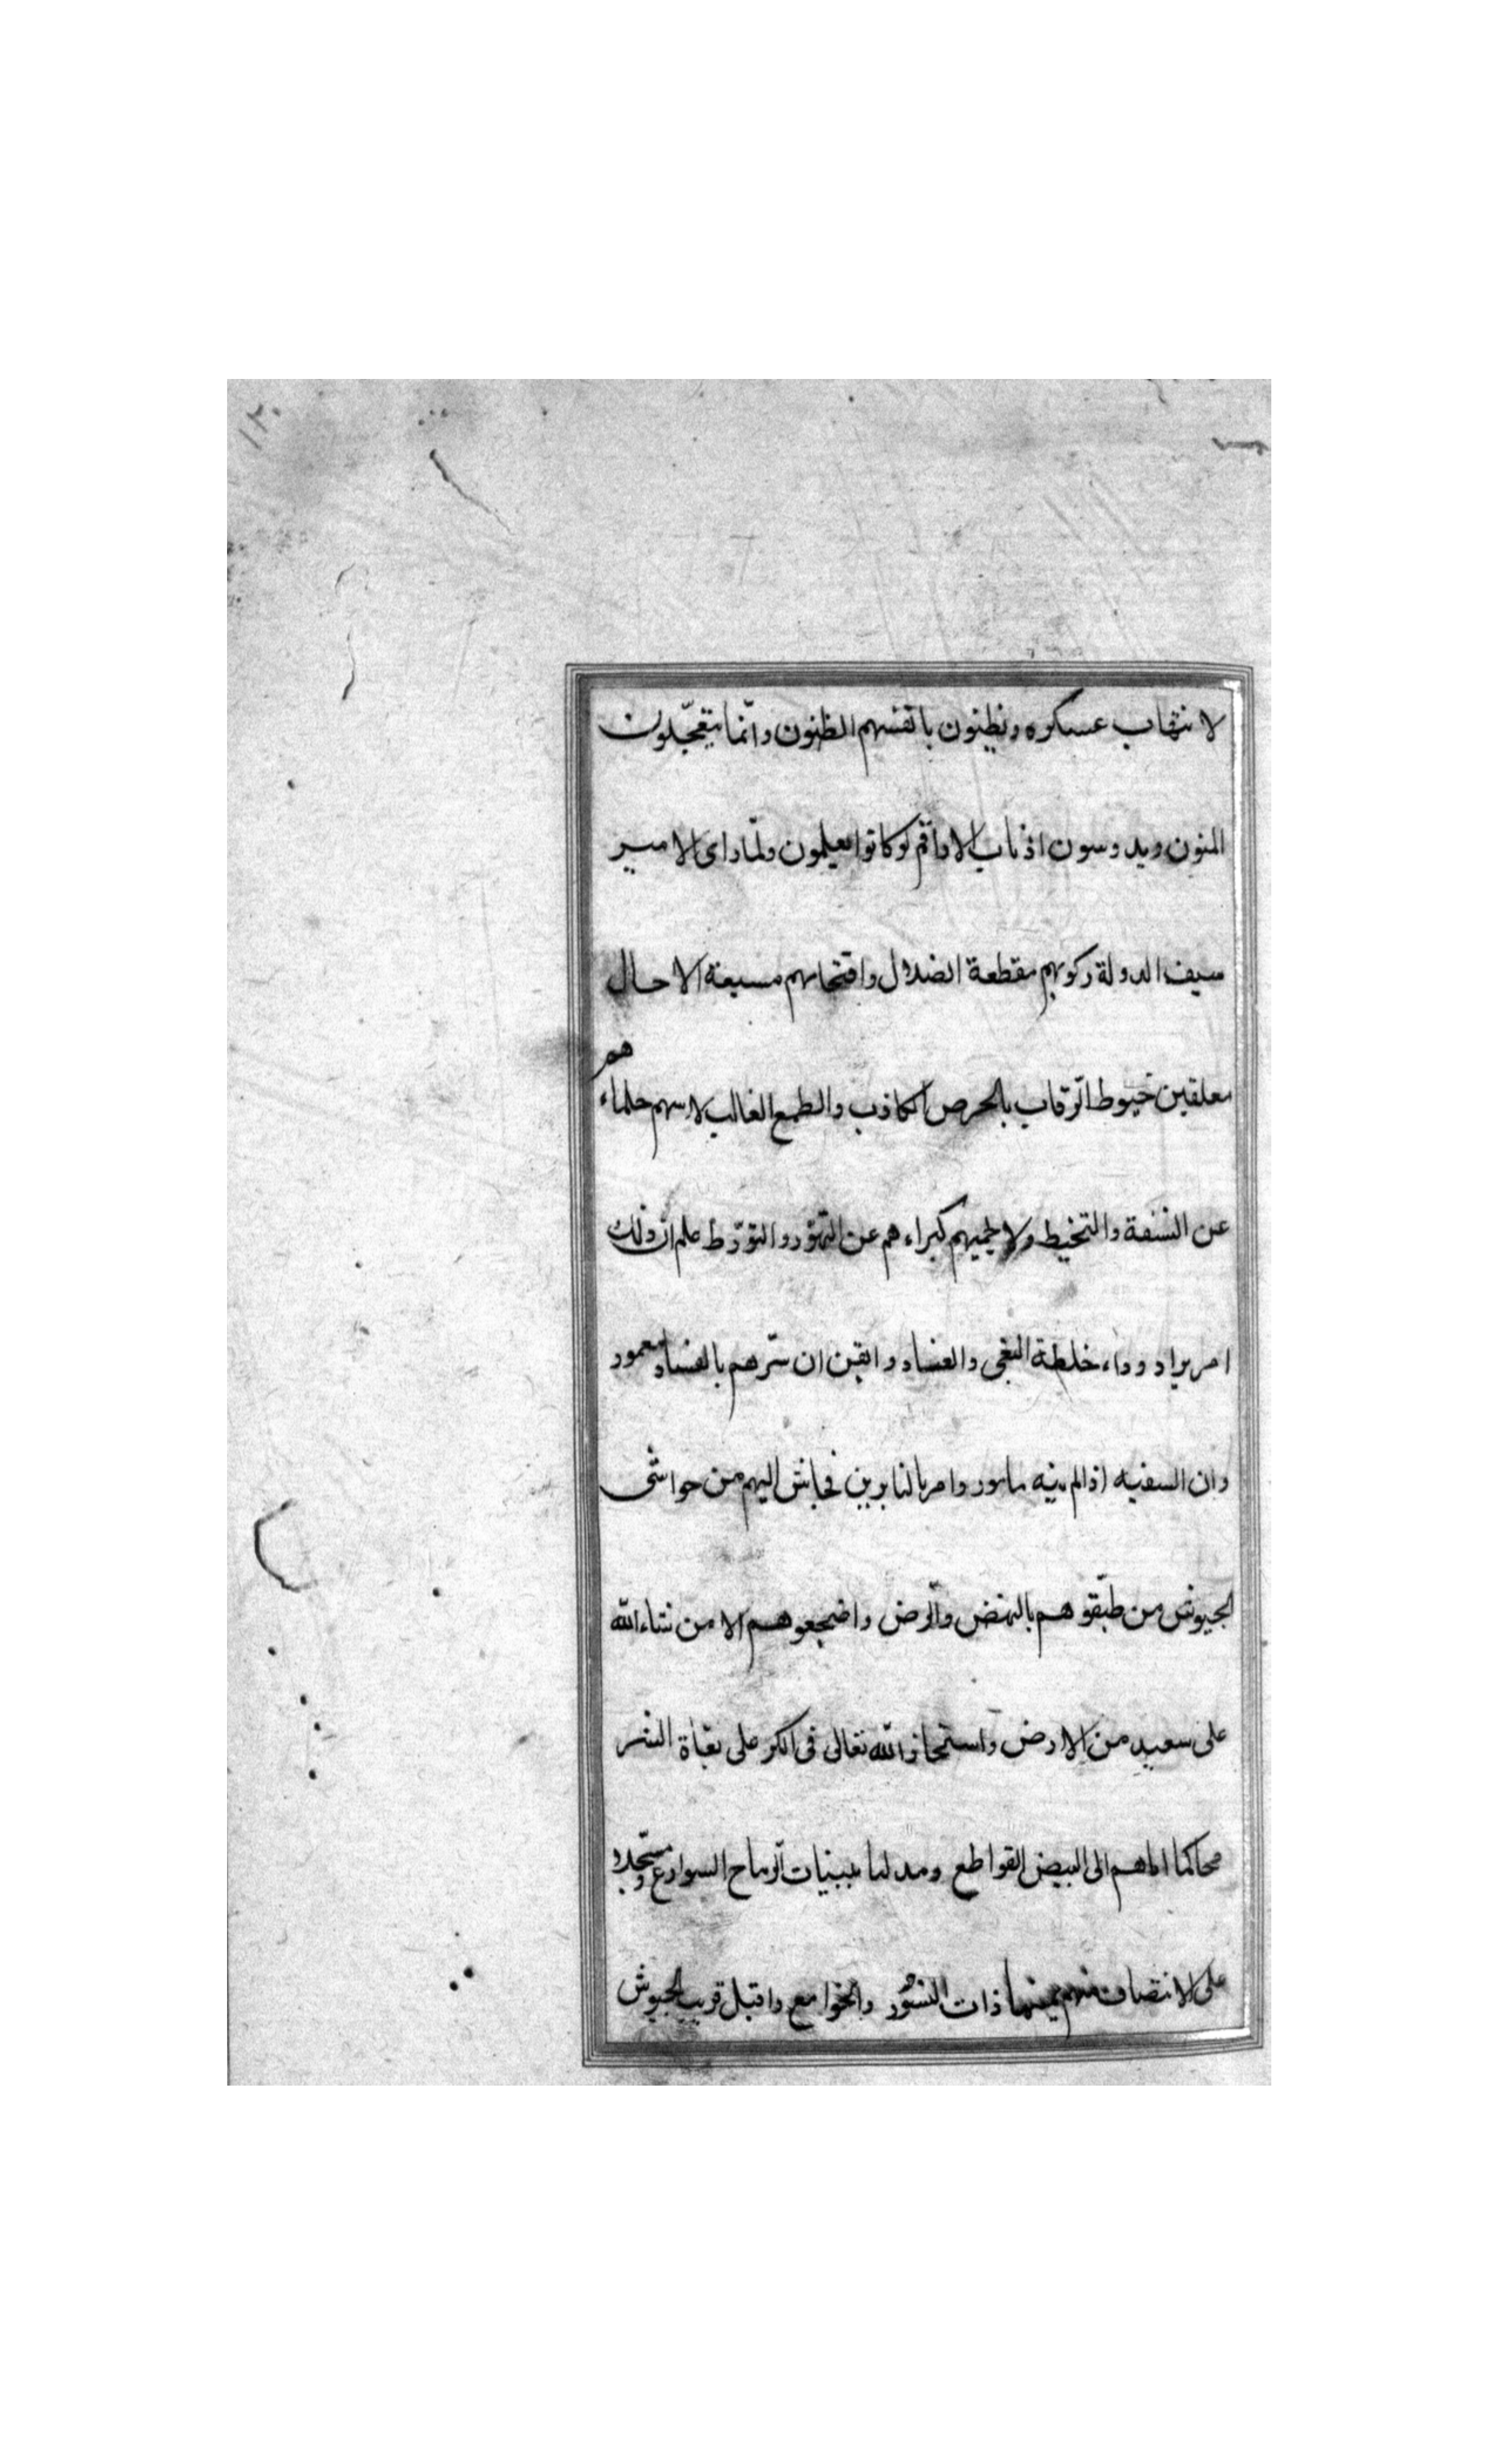 ١٢٠
لا نتهاب عسكره ويظنون بانفسهم الظنون وانّما يتعجّلون
المنون ويدوسون اذناب الاراقم لو كانوا يعلمون ولمّا راى الامير
سيف الدولة ركوبهم مقطعة الضلال واقتحامهم مسبعة الاحال
معلقين خيوط الرّقاب بالحرص الكاذب والطمع الغالب لا حلماءهم
عن السفة والتخيط ولا كبراءهم عن التهوّر والتورّط علم ان ذلك
امر يراد وداء خلطة البغى والفساد وايقن ان سرّهم بالفساد معمور
وان السفيه اذا لم ينه مامور وامر بالنابرين فجاش اليهم من حواشى
الجيوش من طبّقوهم بالهض والرّض واضجعوهم الا من شاء الله
على سعيد من الارض واستخار الله تعالى فى الكر على بغاة الشر
محاكما اياهم الى البيض القواطع ومدليا ببينات الرّماح السوارع
على الانتصاف منهم ذات النسور والخوامع واقبل قريب الجيوش